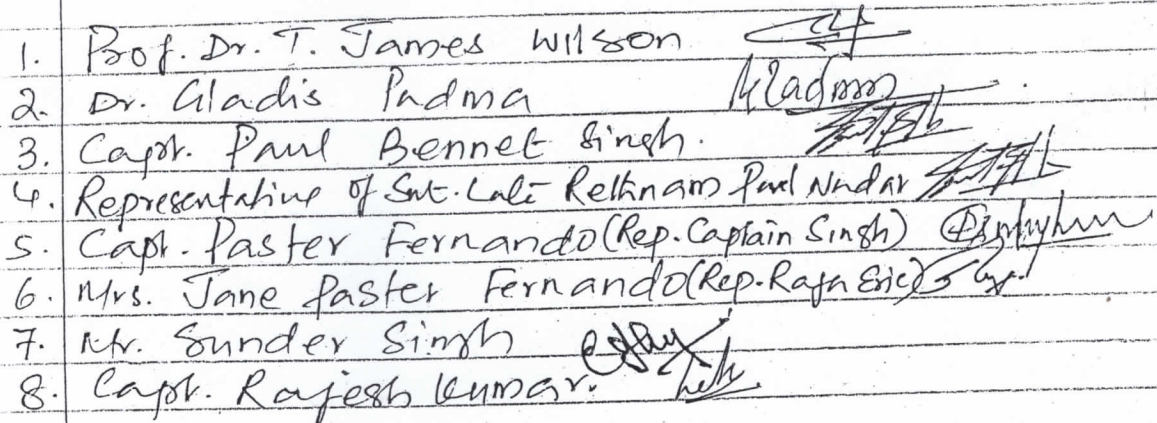 1. Prof. Dr. T. James Wilson
2. Dr. Gladis Padma
3. Capt. Paul Bennet Singh.
4. Representative of Smt. Lali Rethinam Paul Nadar
5. Capt. Paster Fernando (Rep. Captain Singh)
6. Mrs. Jane Paster Fernando (Rep. Raja Eric)
7. Mr. Sunder Singh
8. Capt. Rajesh Kumar.